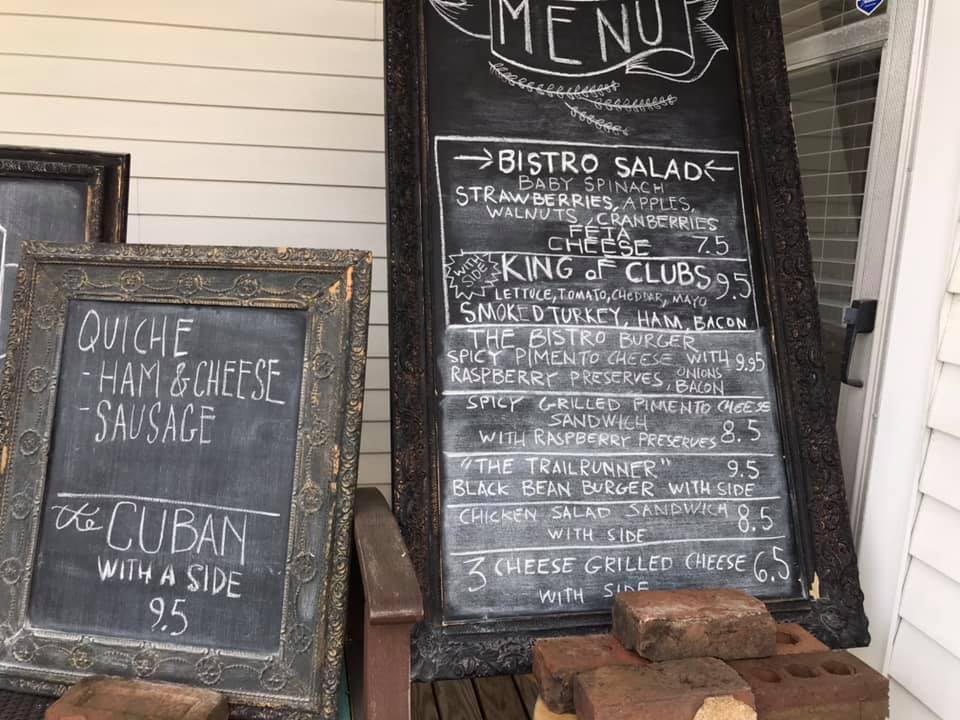 MENU
→BISTRO SALAD←
BABY SPINACH
STRAWBERRIES, APPLES,
WALNUTS, CRANBERRIES
FETA
CHEESE 7.5
WITH SIDE
KING of CLUBS 9.5
LETTUCE, TOMATO, CHEDDAR, MAYO
SMOKED TURKEY, HAM, BACON
THE BISTRO BURGER
SPICY PIMENTO CHEESE WITH 9.95
RASPBERRY PRESERVES, ONIONS, BACON
SPICY GRILLED PIMENTO CHEESE
SANDWICH
WITH RASPBERRY PRESERVES 8.5
"THE TRAILRUNNER" 9.5
BLACK BEAN BURGER WITH SIDE
CHICKEN SALAD SANDWICH 8.5
WITH SIDE
3 CHEESE GRILLED CHEESE 6.5
WITH SIDE
QUICHE
-HAM & CHEESE
-SAUSAGE
the CUBAN
WITH A SIDE
9.5